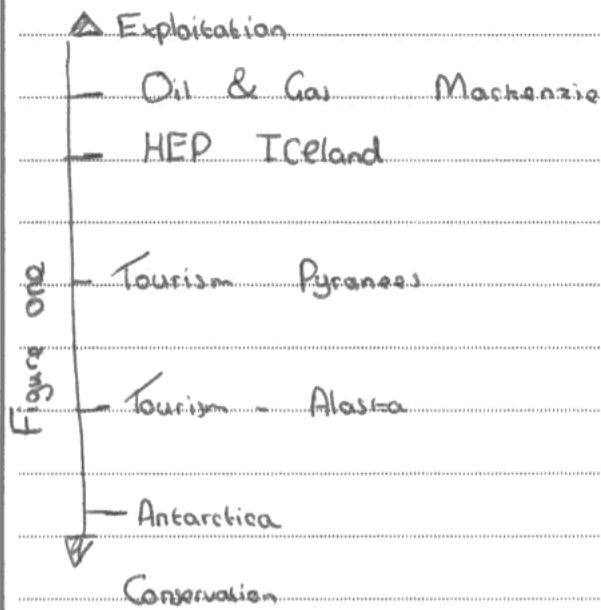 Exploitation
Oil & Gas Mackenzie
HEP Iceland
Tourism Pyranees
Tourism - Alaska
Antarctica
Conservation
Figure one